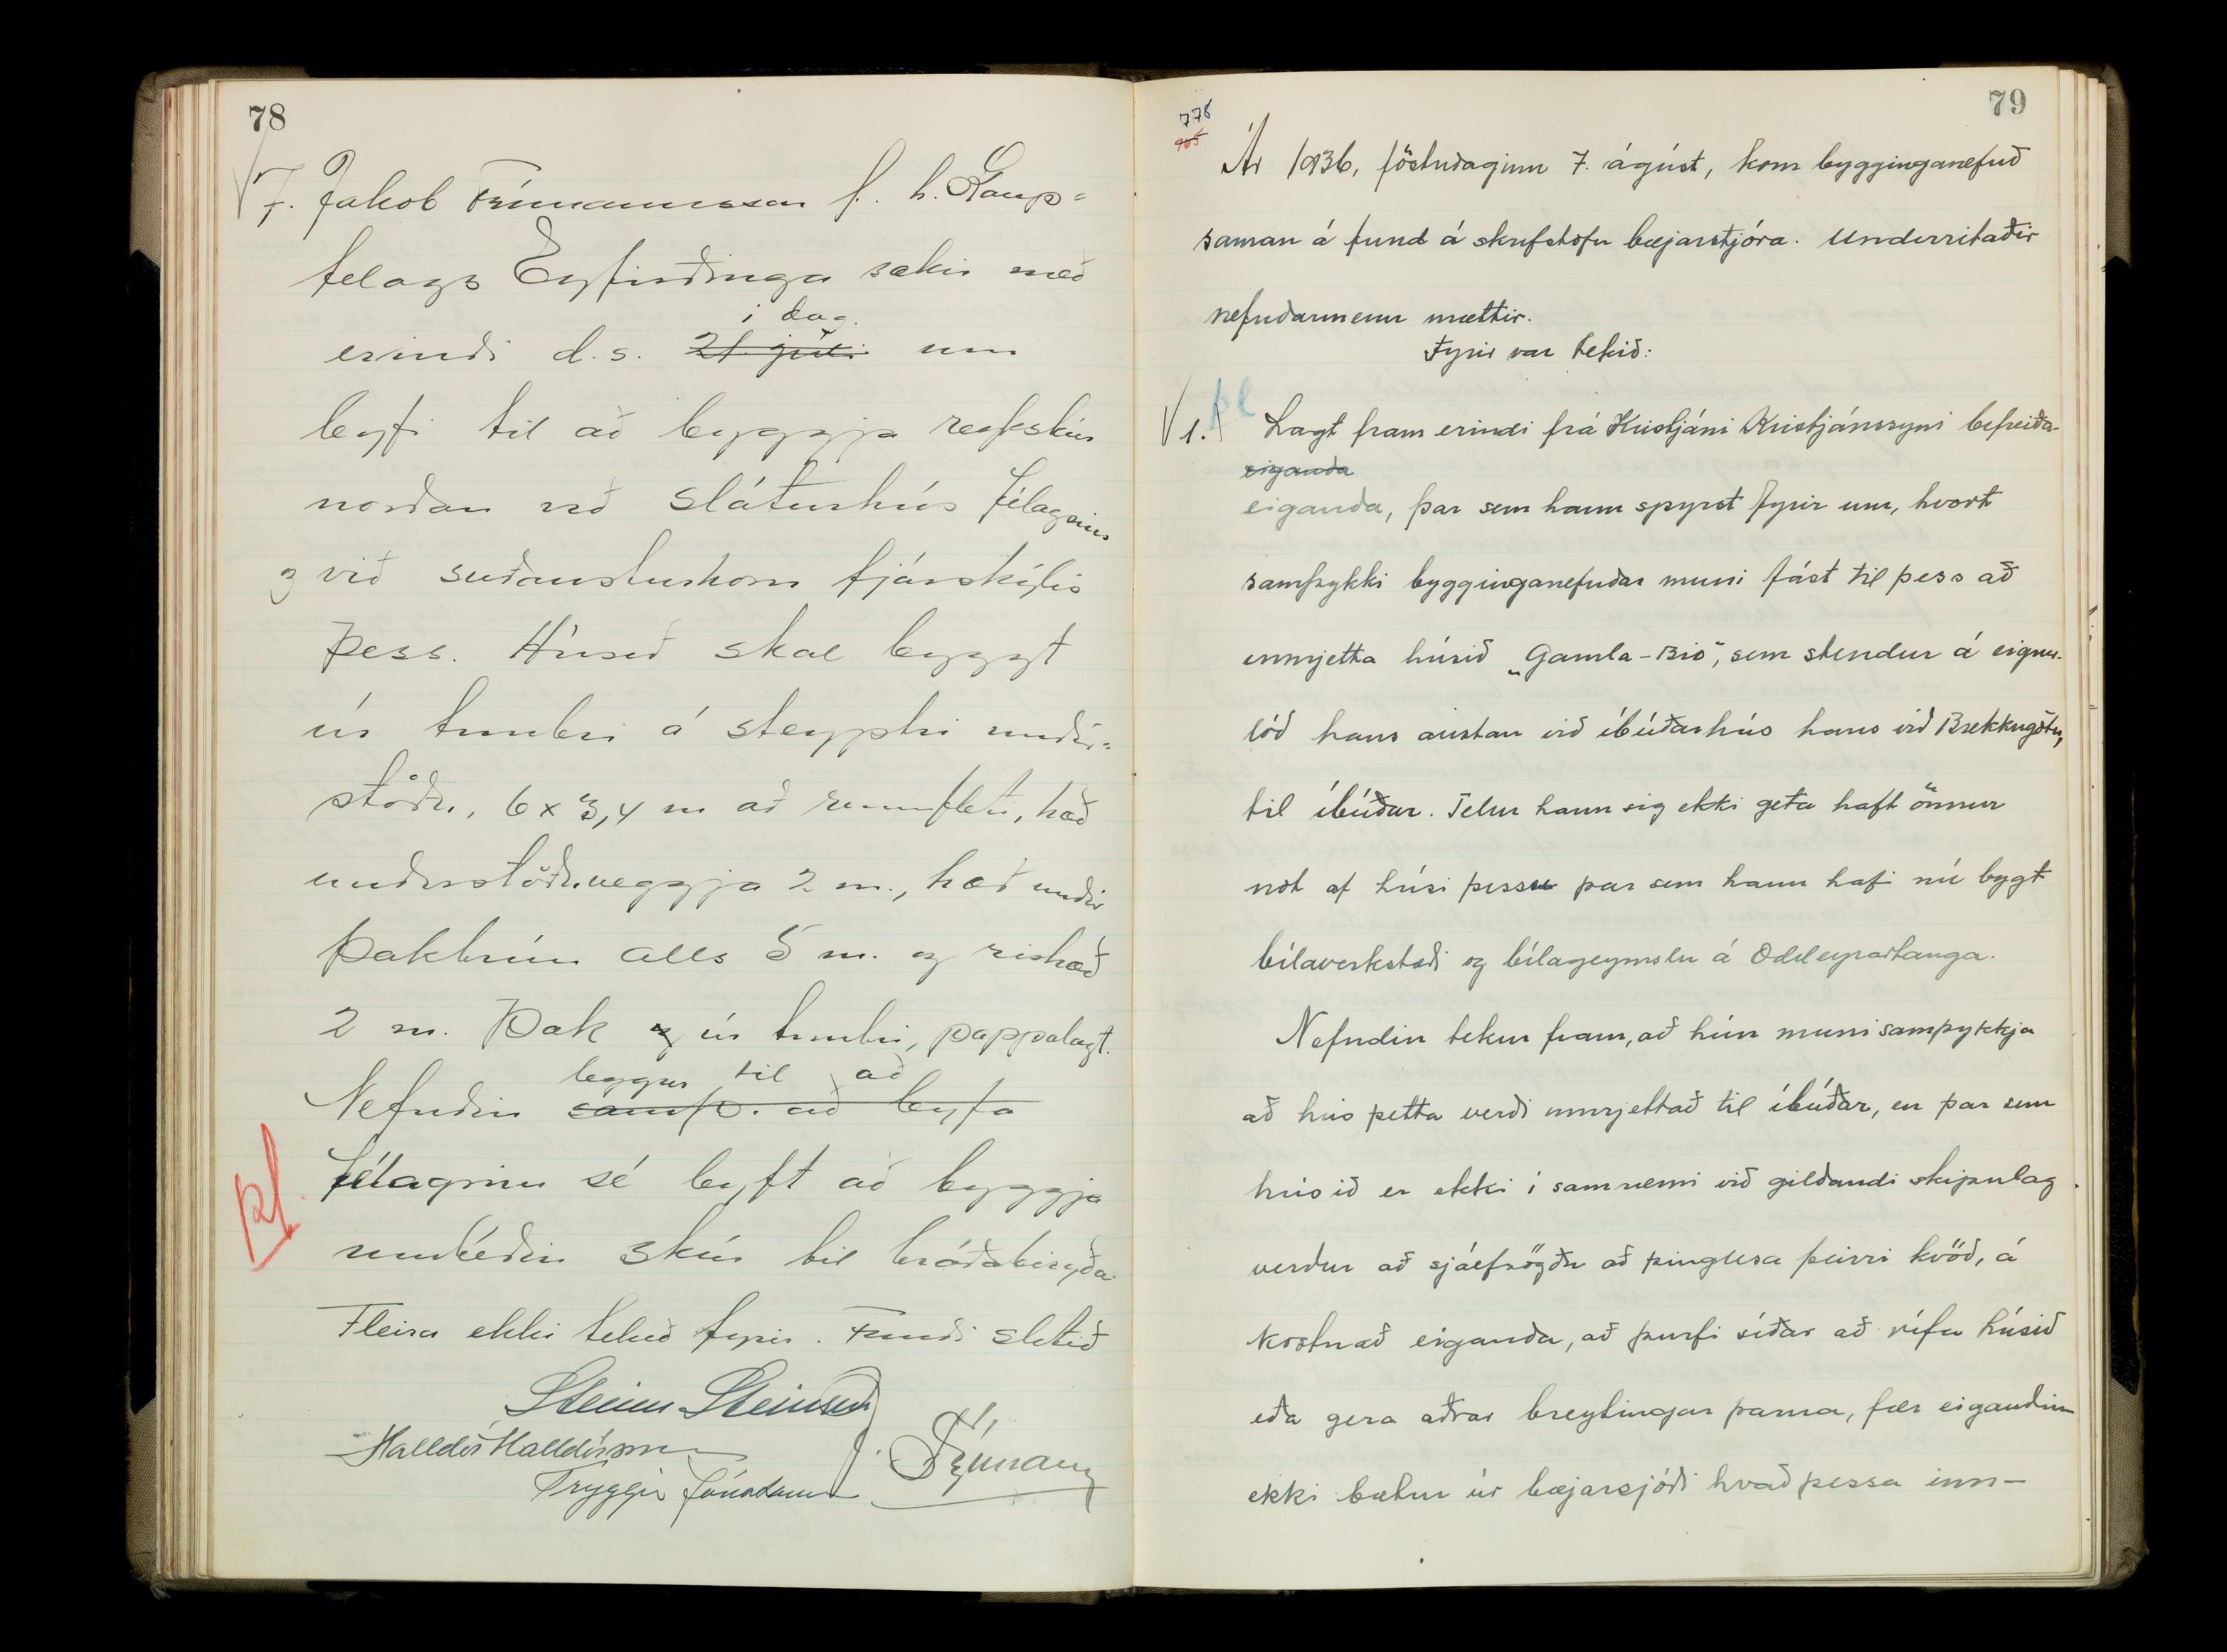 78
7. Jakob Frímannsson f. h. Kaup=
felags Eyfirðinga sækir með
í dag.
erindi d.s. 21. júlí um
leyfi til að byggja reykskúr
norðan við sláturhús félagsins
og við suðausturhorn fjárskýlis
þess. Húsið skal byggt
úr timbri á steyptri undir=
stöðu, 6 x 3,4 m að rúmfleti, hæð
undirstöðuveggja 2 m., hæð undir
þakbrún alls 5 m. og rishæð
2 m. Þak og úr timbri, pappalagt.
leggur til að
Nefndin samþ. að leyfa
félaginu sé leyft að byggja
umbeðin skúr til bráðabirgða
Fleira ekki tekið fyrir. Fundi slitið
Steinn Steinsen
Halldór Halldórsson
Tryggvi Jónatansson
79
778
Ár 1936, föstudaginn 7. ágúst, kom bygginganefnd
saman á fund á skrifstofu bæjarstjóra. Undirritaðir
nefndarmenn mættir.
Fyrir var tekið:
1. Lagt fram erindi frá Kristjáni Kristjánssyni bifreiða-
eiganda
eiganda, þar sem hann spyrst fyrir um, hvort
samþykki bygginganefndar muni fást til þess að
innrjetta húsið „Gamla-Bio", sem stendur á eignar-
lóð hans austan við íbúðarhús hans við Brekkugötu,
til íbúðar. Telur hann sig ekki geta haft önnur
not af húsi þessu þar sem hann hafi nú bygt
bílaverkstæði og bílageymslu á Oddeyrartanga.
Nefndin tekur fram, að hún muni samþykkja
að hús þetta verði innrjettað til íbúðar, en þar sem
húsið er ekki í samræmi við gildandi skipulag
verður að sjálfsögðu að þinglesa þeirri kvöð, á
kostnað eiganda, að þurfi síðar að rífa húsið
eða gera aðrar breytingar þarna, fær eigandinn
ekki bætur úr bæjarsjóði hvað þessa inn-